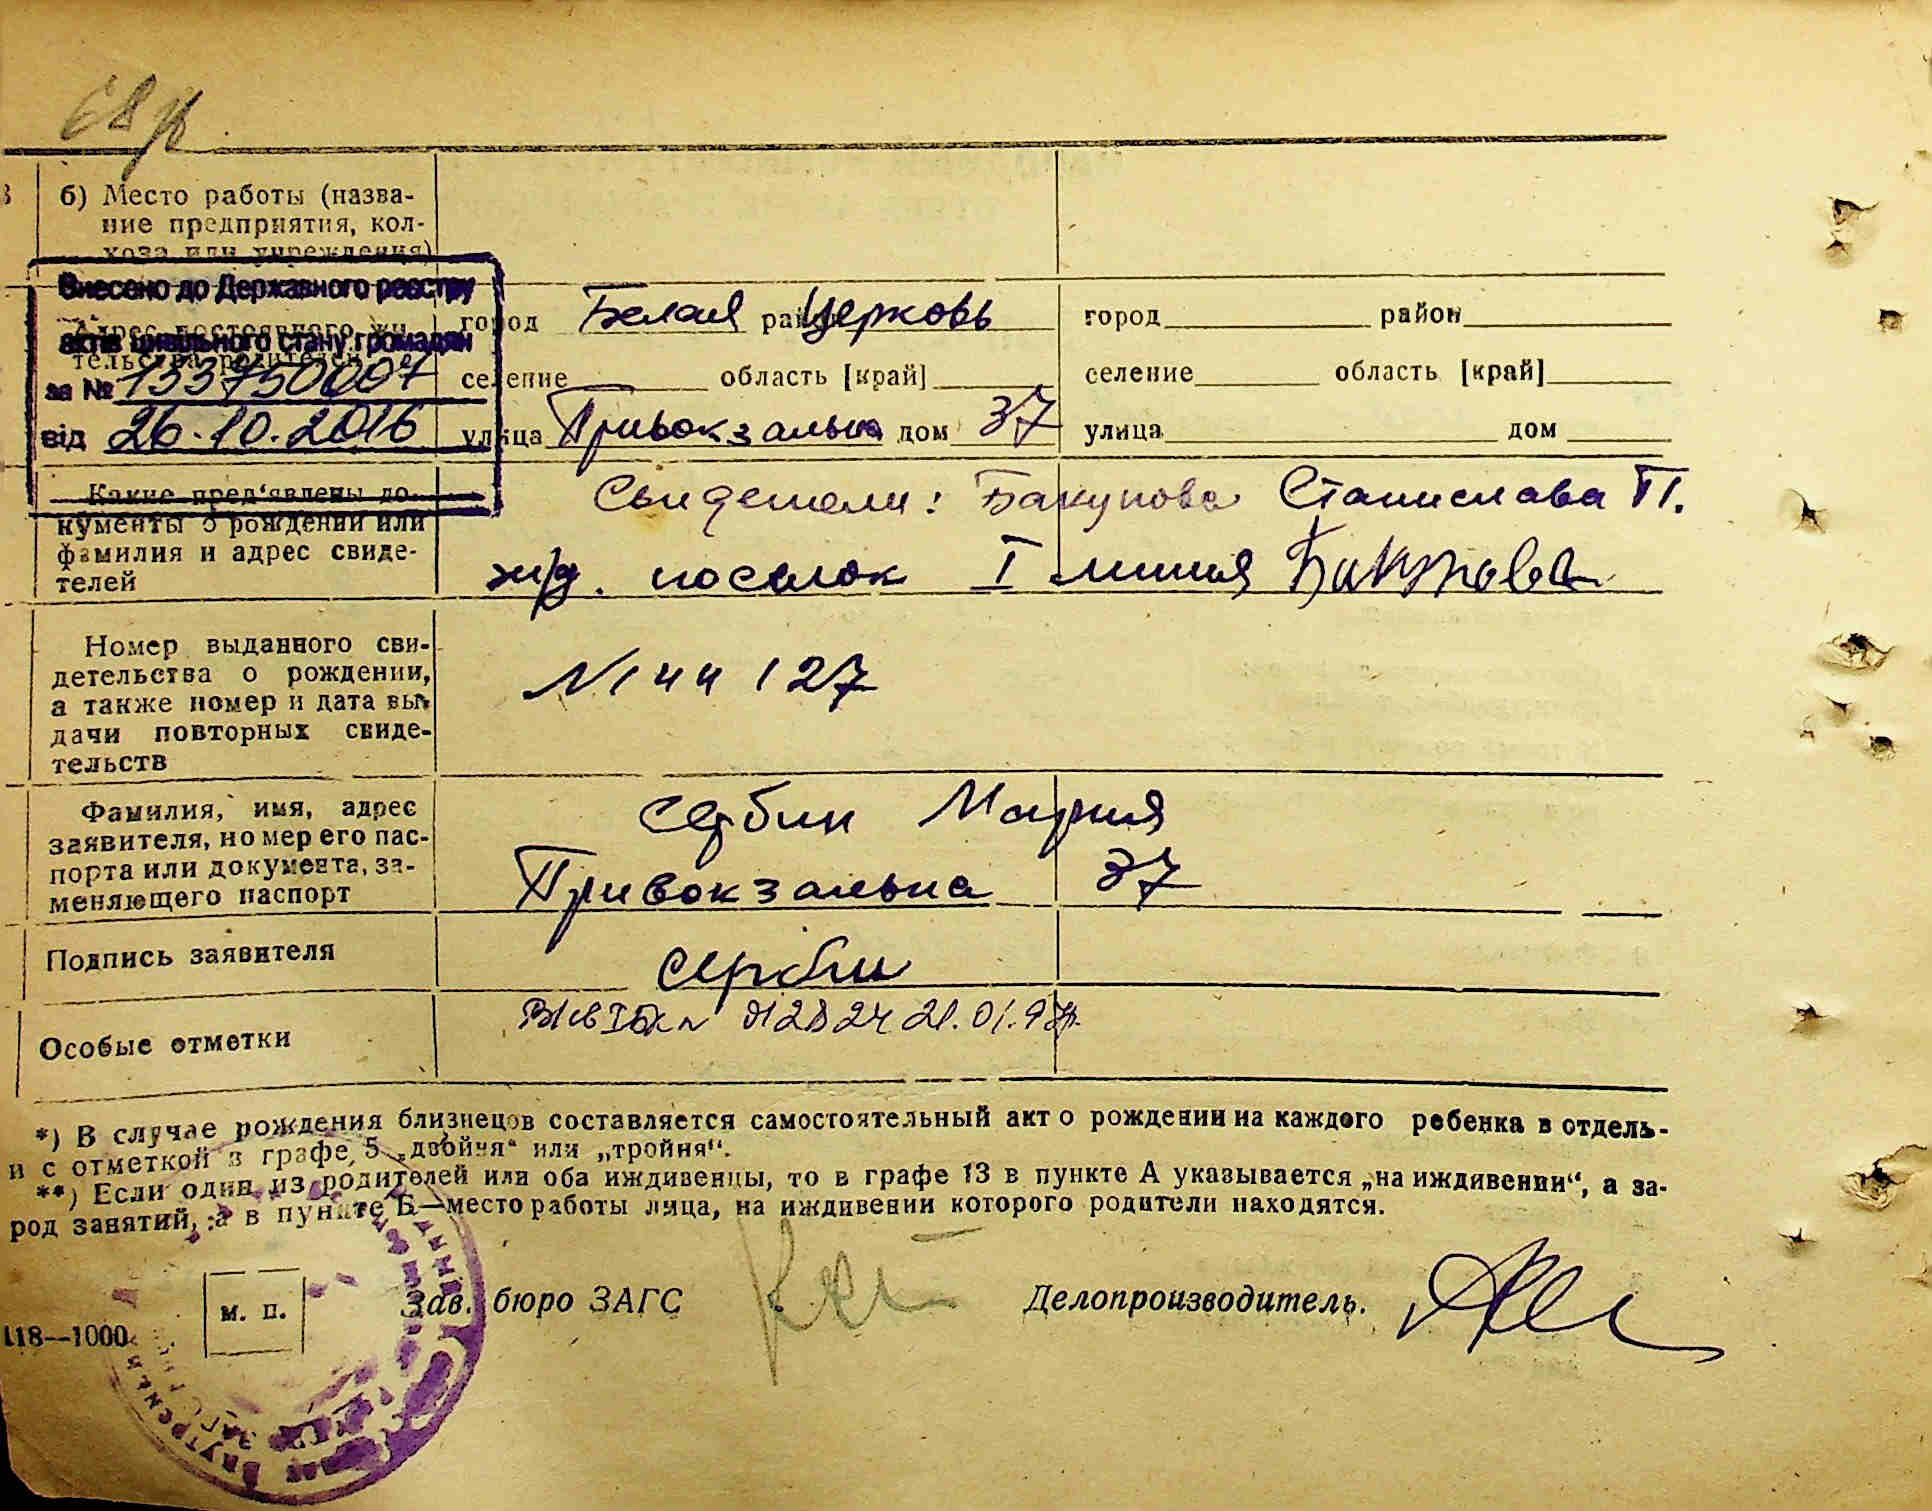 68
б) Место работы (назва-
ние предприятия, кол-
хоза или учреждения)
Внесено до Державного реєстру
актів цивільного стану громадян
за № 133750007
від 26.10.2016
Адрес постоянного жи-
тельства родителей
город Белая район Церковь
селение область [край]
улица Привокзальна дом 37
город район
селение область [край]
улица дом
Какие пред'явлены до-
кументы о рождении или
фамилия и адрес свиде-
телей
Свидетели: Бакунова Станислава П.
ж/д. поселок I линия Бакунова
Номер выданного сви-
детельства о рождении,
а также номер и дата вы-
дачи повторных свиде-
тельств
№ 144127
Фамилия, имя, адрес
заявителя, номер его пас-
порта или документа, за-
меняющего паспорт
Сербин Мария
Привокзальна 37
Подпись заявителя
Сербин
Особые отметки
21.01.97р.
*) В случае рождения близнецов составляется самостоятельный акт о рождении на каждого ребенка в отдель-
и с отметкой в графе 5 „двойня“ или „тройня“.
**) Если один из родителей или оба иждивенцы, то в графе 13 в пункте А указывается „на иждивении“, а за-
род занятий, а в пункте Б—место работы лица, на иждивении которого родители находятся.
м. п.
Зав. бюро ЗАГС
Делопроизводитель.
118—1000